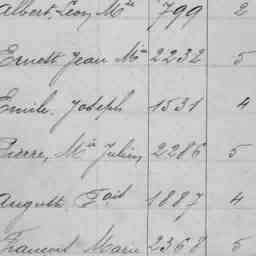 Albert, Léon, Mie 799 2
Ernest Jean Mie 2232 5
Emile, Joseph 1531 4
Pierre, Mie Julien, 2286 5
Auguste, Toit 1887 4
François Marie 2368 5